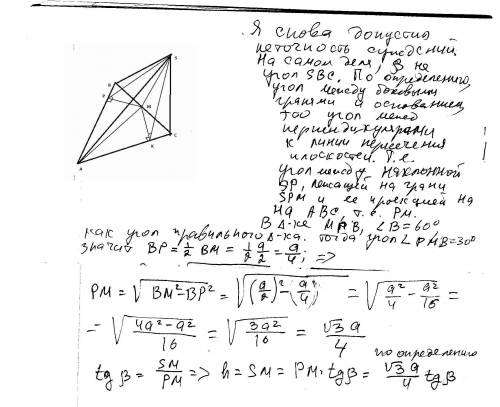 S
B
P
M
C
K
A
Я снова допустил
неточность суждений.
На самом деле, β не
угол SBC. По определению,
угол между боковыми
гранями и основанием
это угол между
перпендикулярами
к линии пересечения
плоскостей. Т.е.
угол между наклонной
SP, лежащей на грани
и ее проекцией на
на ABC, т.е. PM.
В Δ-ке MPB, ∠B=60°
как угол правильного Δ-ка. Тогда угол ∠PMB=30°
значит BP=½ BM = ½ a/2 = a/4; =>
PM = √(BM²-BP²) = √((a/2)²-(a/4)²) = √(a²/4 - a²/16) =
= √((4a²-a²)/16) = √(3a²/16) = √3a/4
по определению
tg β = SM/PM => h = SM = PM·tgβ = √3a/4 tgβ